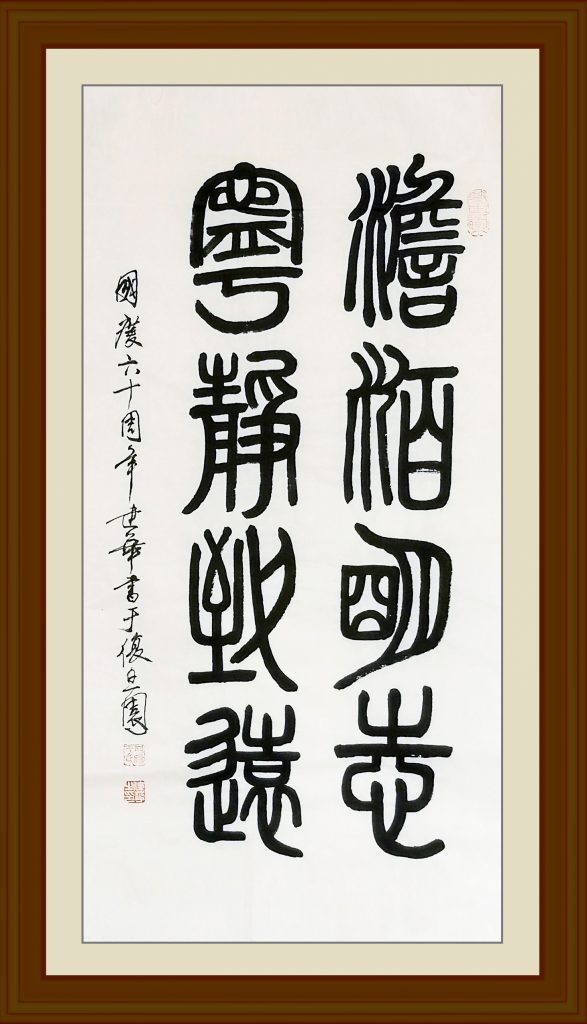 澹泊明志
寧靜致遠
國慶六十周年建華書于復旦園